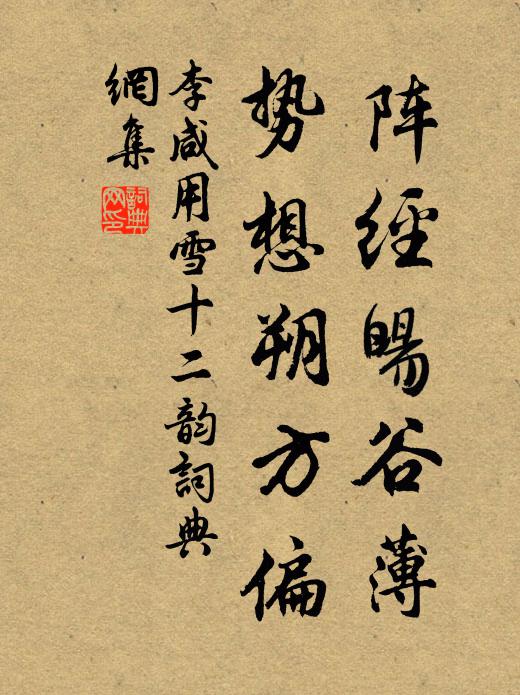 阵經暘谷薄
势想朔方偏
李咸用雪十二韵詞典
網集
詞典
网印